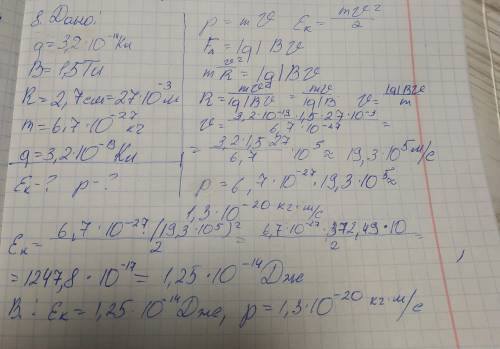 8. Дано:
q = 3,2·10⁻¹⁹ Кл
B = 1,5 Тл
R = 2,7 см = 27·10⁻³ м
m = 6,7·10⁻²⁷ кг
q = 3,2·10⁻¹⁹ Кл
Eк - ? p - ?
p = mv Eк = mv²/2
Fл = |q|Bv
m v²/R = |q|Bv
R = mv²/|q|Bv = mv/|q|B v = |q|Bv/m
v = 3,2·10⁻¹⁹·1,5·27·10⁻³/6,7·10⁻²⁷ =
= 3,2·1,5·27/6,7 ·10⁵ ≈ 19,3·10⁵ м/с
p = 6,7·10⁻²⁷·19,3·10⁵ ≈
1,3·10⁻²⁰ кг·м/с
Eк = 6,7·10⁻²⁷(19,3·10⁵)²/2 = 6,7·10⁻²⁷·372,49·10/2 =
= 1247,8·10⁻¹⁷ = 1,25·10⁻¹⁴ Дж
В: Eк = 1,25·10¹⁴ Дж, p = 1,3·10⁻²⁰ кг·м/с